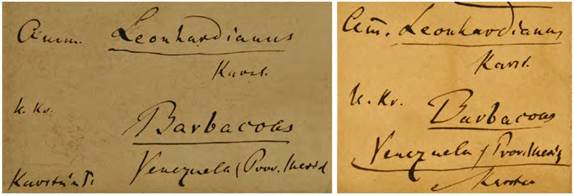 Amm. Leonhardianus
Karst.
U. Kr.
Barbacoas
Venezuela (Prov. Merid
Am. Leonhardianus
Karst.
U. Kr.
Barbacoas
Venezuela (Prov.
Karsten